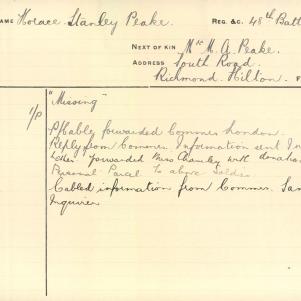 NAME Horace Stanley Peake. REG. &C. 48th Batt
NEXT OF KIN Mrs M. A. Peake.
ADDRESS South Road.
Richmond. Hilton.
"Missing"
1/P Cably forwarded Commr London.
Reply from Commr. Information sent
Letter forwarded Miss with
Personal Parcel to above
Cabled information from Commr.
Inquirer